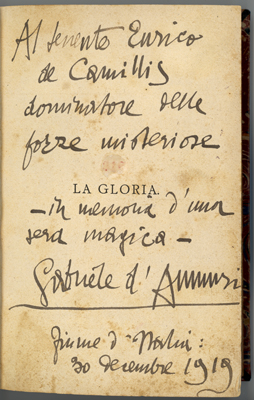 Al tenente Enrico
de Camillis
dominatore delle
forze misteriose
LA GLORIA.
– in memoria d'una
sera magica –
Gabriele d'Annunzi
Fiume d'Italia:
30 decembre 1919